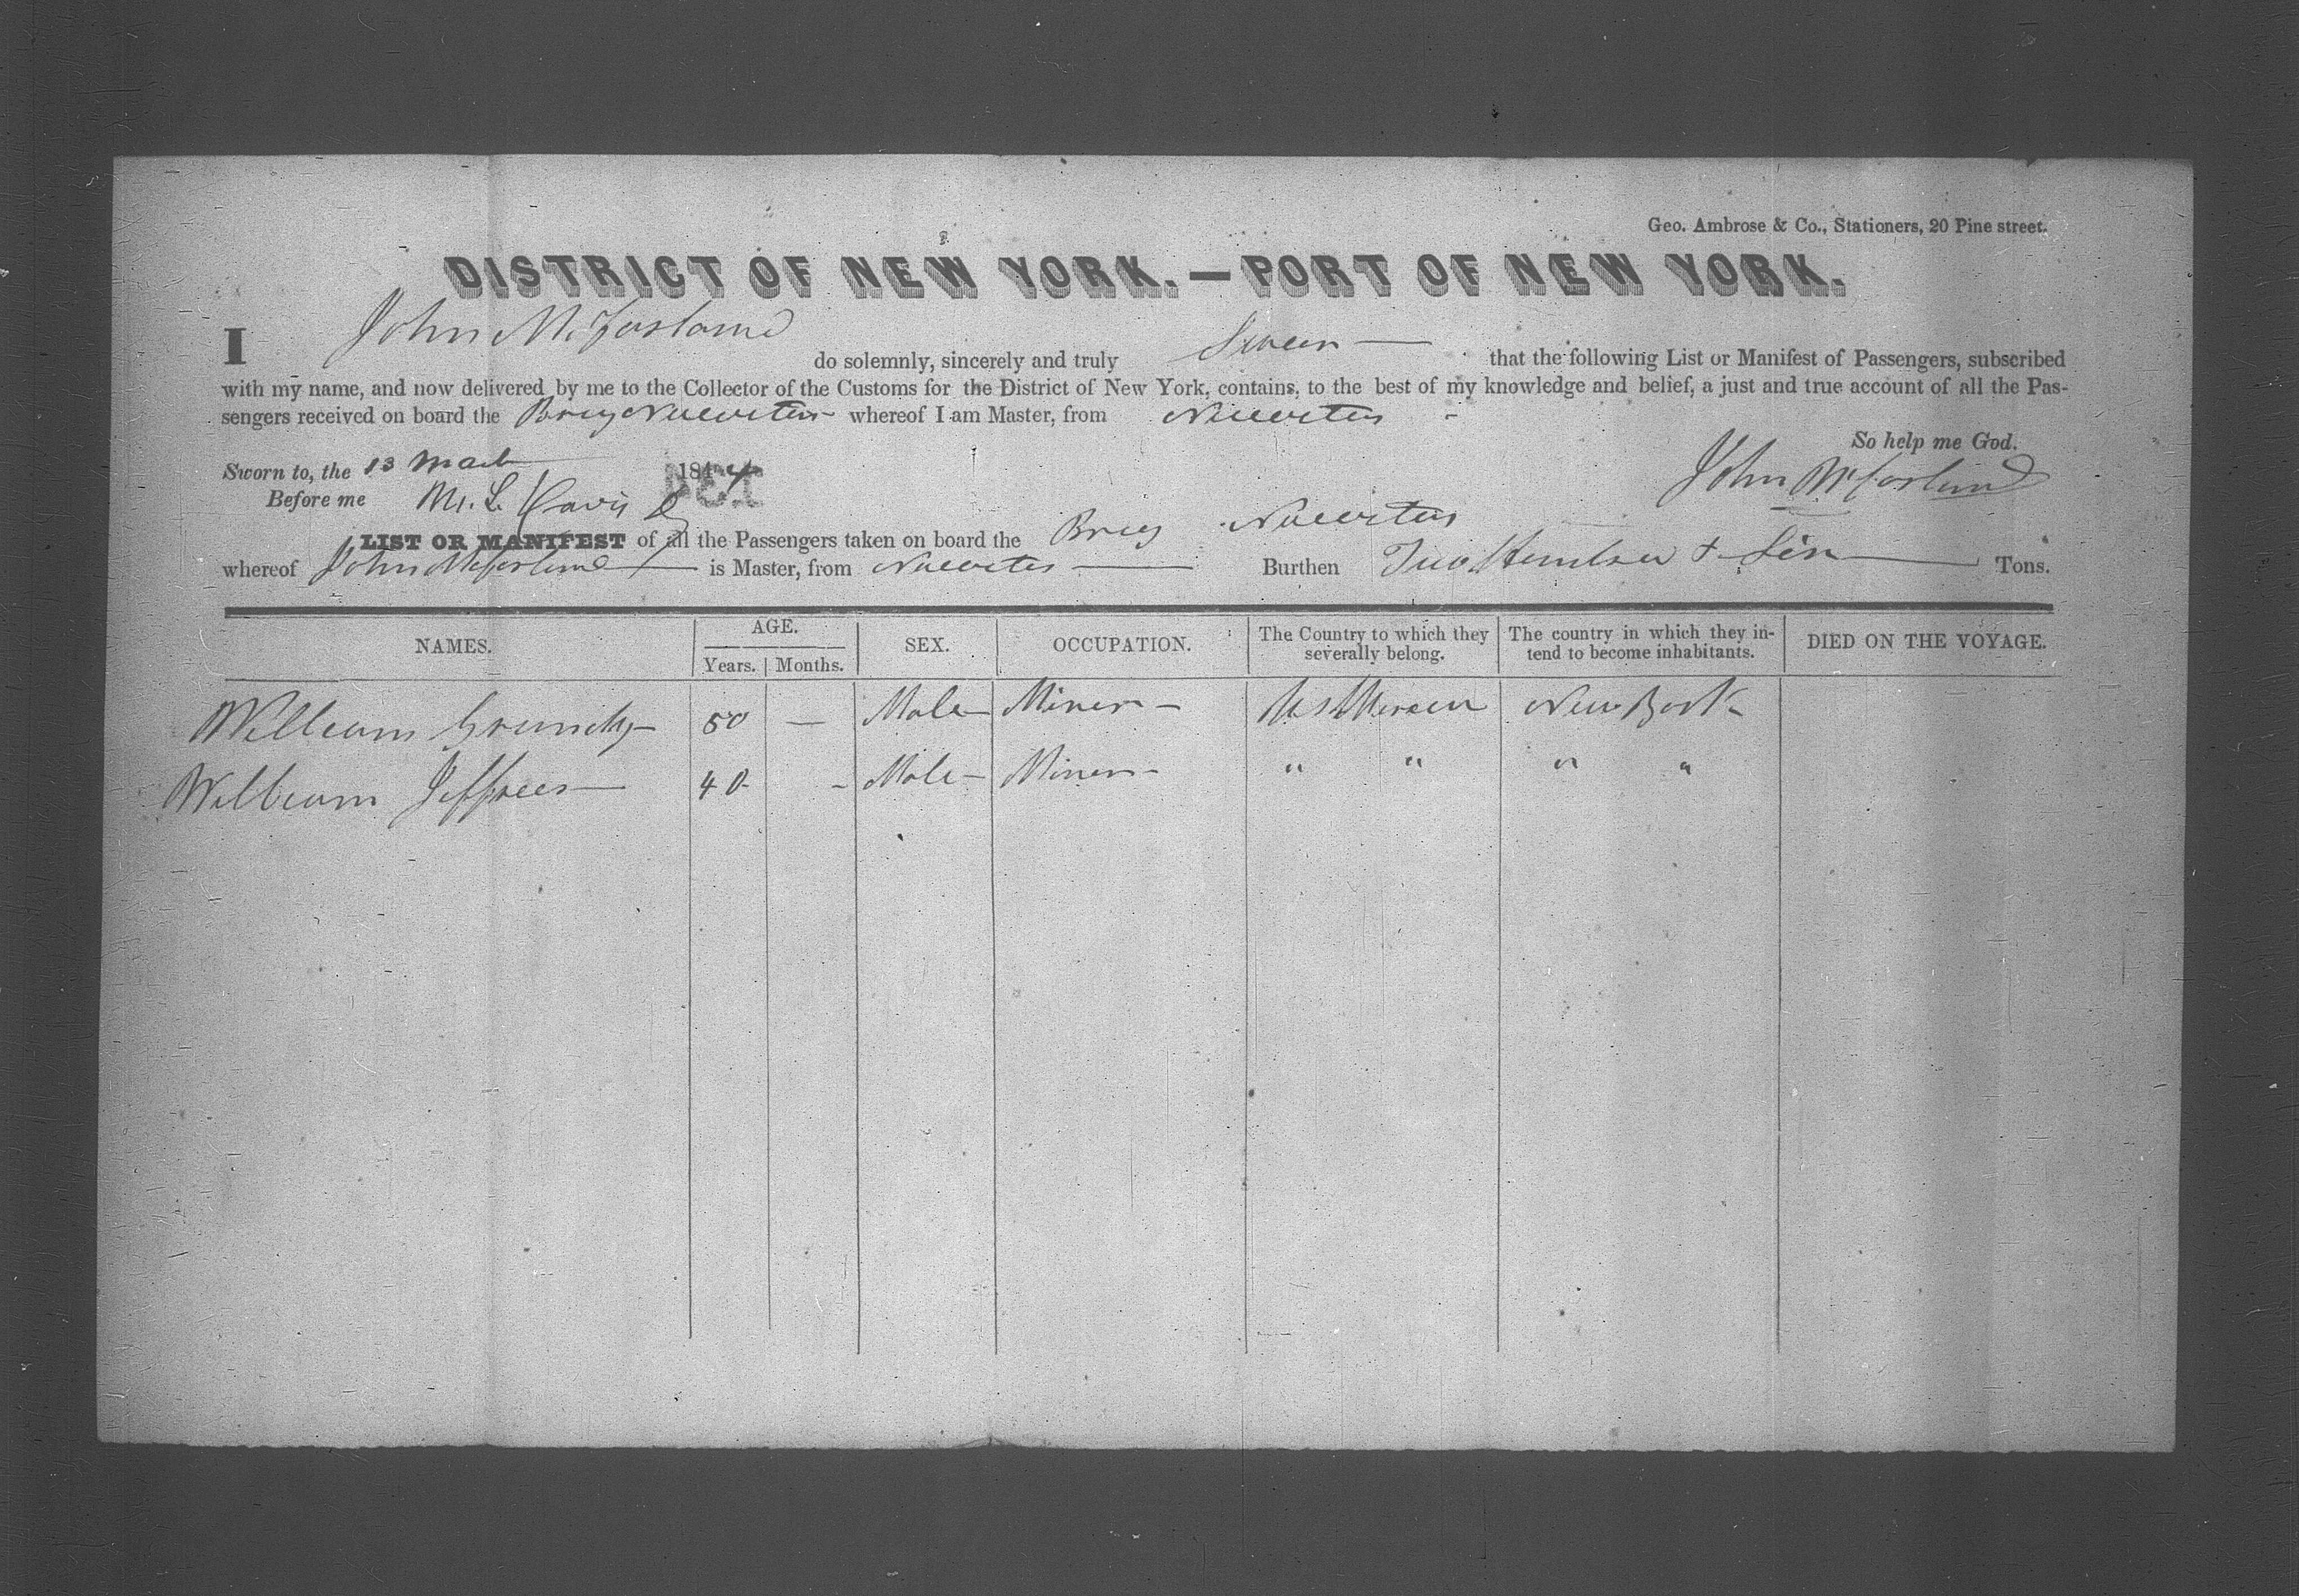 Geo. Ambrose & Co., Stationers, 20 Pine street.
DISTRICT OF NEW YORK.—PORT OF NEW YORK.
I John McFarland do solemnly, sincerely and truly Swear — that the following List or Manifest of Passengers, subscribed
with my name, and now delivered by me to the Collector of the Customs for the District of New York, contains, to the best of my knowledge and belief, a just and true account of all the Pas-
sengers received on board the Brig Nuevitas whereof I am Master, from Nuevitas -
So help me God.
Sworn to, the 13 March 1844
John McFarland
Before me M. L. Davis
LIST OR MANIFEST of all the Passengers taken on board the Brig Nuevitas
whereof John McFarland is Master, from Nuevitas — Burthen Two Hundred + Ten — Tons.
NAMES. AGE. SEX. OCCUPATION. The Country to which they severally belong. The country in which they in-tend to become inhabitants. DIED ON THE VOYAGE.
Years. Months.
William Grundy — 50 — Male — Miner — New York
William Jeffrees — 40 - Male — Miner — " " " "